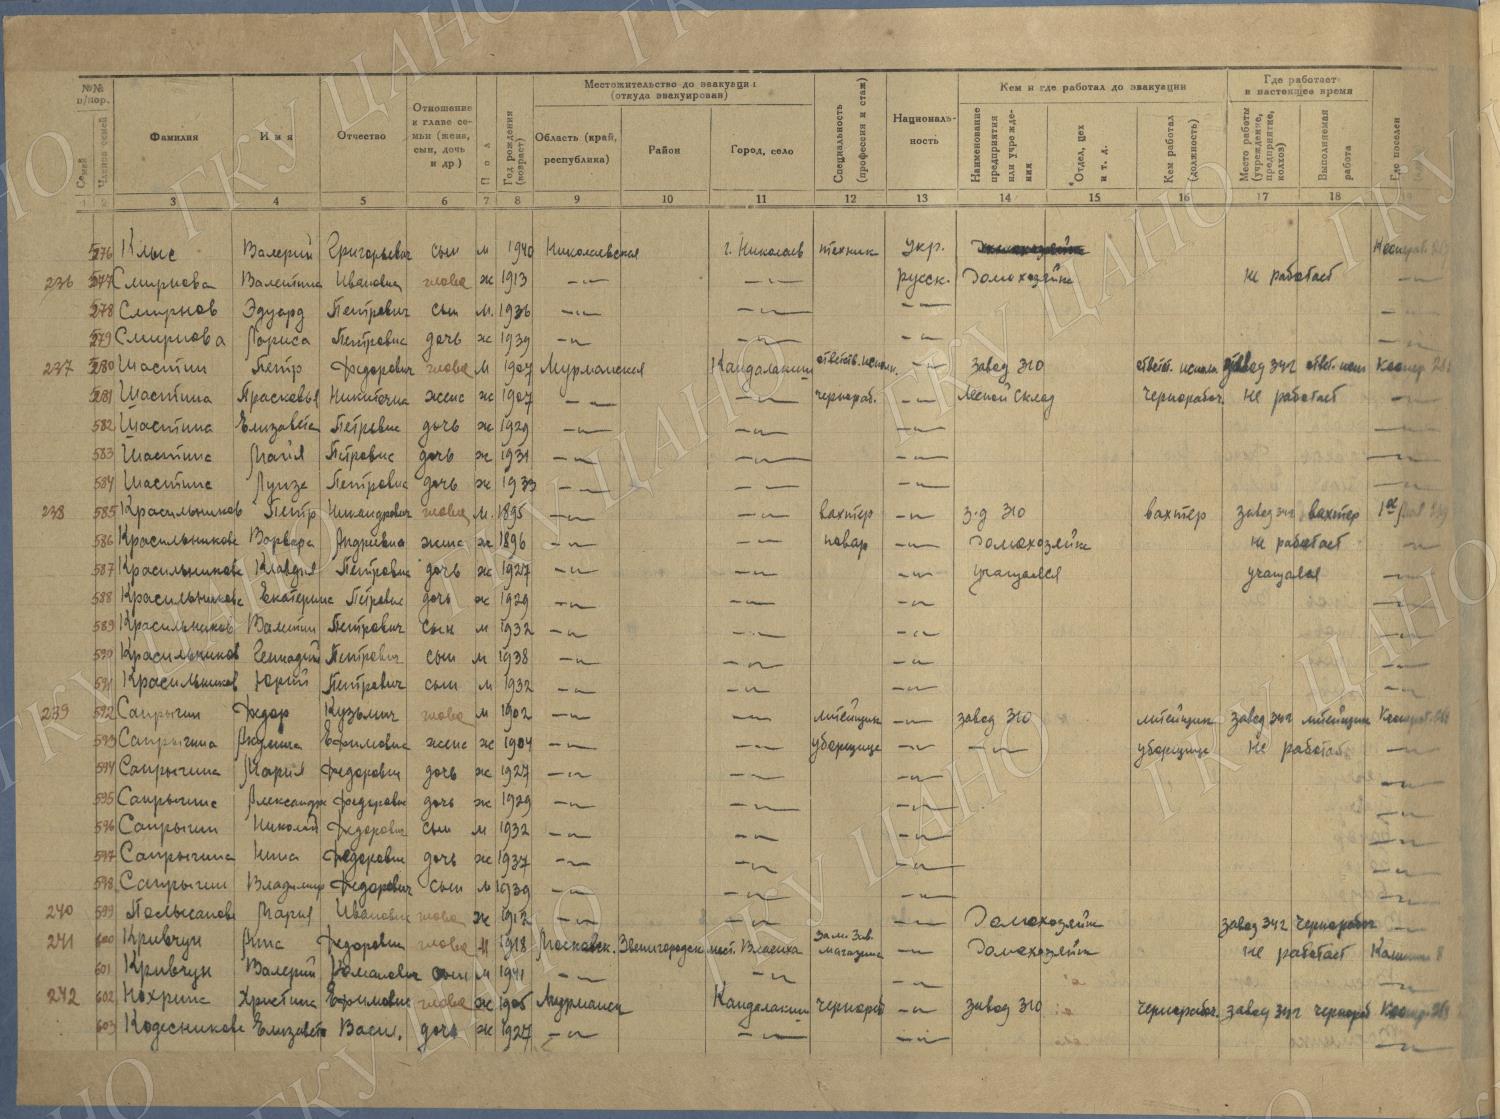 №№ п/пор. Местожительство до эвакуации (откуда эвакуирован) Кем и где работал до эвакуации Где работает в настоящее время
Семей Членов семей Фамилия Имя Отчество Отношение к главе семьи (жена, сын, дочь и др.) Пол Год рождения (возраст) Область (край, республика) Район Город, село Специальность (профессия и стаж) Национальность Наименование предприятия или учреждения Отдел, цех и т. д. Кем работал (должность) Место работы (учреждение, предприятие, колхоз) Выполняемая работа Где поселен
1 2 3 4 5 6 7 8 9 10 11 12 13 14 15 16 17 18 19
576 Клыс Валерий Григорьевич сын м 1940 Николаевская г. Николаев техник укр.
236 577 Смирнова Валентина Ивановна глова ж 1913 —"— —"— русск. Домохозяйка не работает —"—
578 Смирнов Эдуард Петрович сын м. 1936 —"— —"— —"— —"—
579 Смирнова Лариса Петровна дочь ж 1939 —"— —"— —"— —"—
237 580 Шастин Петр Федорович глова м 1907 Мурманская Кандалакши ответств. исполн. —"— Завод 310 ответ. исполн. завод 342 ответ. исп Коопер.
581 Шастина Прасковья Никитична жена ж 1907 —"— —"— чернораб. —"— Лесной склад Чернорабоч. не работает —"—
582 Шастина Елизавета Петровна дочь ж 1929 —"— —"— —"— —"—
583 Шастина Майя Петровна дочь ж 1931 —"— —"— —"— —"—
584 Шастина Луиза Петровна дочь ж 1933 —"— —"— —"— —"—
238 585 Красильников Петр Никандрович глова м. 1895 —"— —"— вахтер —"— з-д 310 вахтер завод 342 вахтер
586 Красильникова Варвара Андреевна жена ж 1896 —"— —"— повар —"— Домохозяйка не работает —"—
587 Красильникова Клавдия Петровна дочь ж 1927 —"— —"— —"— учащаяся учащаяся —"—
588 Красильникова Екатерина Петровна дочь ж 1929 —"— —"— —"— —"—
589 Красильников Валентин Петрович сын м 1932 —"— —"— —"— —"—
590 Красильников Геннадий Петрович сын м 1938 —"— —"— —"— —"—
591 Красильников Юрий Петрович сын м 1932 —"— —"— —"— —"—
239 592 Сапрыгин Федор Кузьмич глова м 1902 —"— —"— литейщик —"— завод 310 литейщик завод 342 литейщик
593 Сапрыгина Акулина Ефимовна жена ж 1904 —"— —"— уборщица —"— —"— уборщица не работает —"—
594 Сапрыгина Мария Федоровна дочь ж 1927 —"— —"— —"— —"—
595 Сапрыгина Александра Федоровна дочь ж 1929 —"— —"— —"— —"—
596 Сапрыгин Николай Федорович сын м 1932 —"— —"— —"— —"—
597 Сапрыгина Нина Федоровна дочь ж 1937 —"— —"— —"— —"—
598 Сапрыгин Владимир Федорович сын м 1939 —"— —"— —"— —"—
240 599 Мария Ивановна глова ж 1912 —"— —"— —"— Домохозяйка завод 342 чернорабоч —"—
241 600 Кривчун Анна Федоровна глова 1918 Московск. Звенигородск. мест. Власиха Зам. Зав. магазина —"— Домохозяйка не работает Калинина 8
601 Кривчун Валерий Романович сын м 1941 —"— —"— —"—
242 602 Нохрина Христина Ефимовна глова ж 1905 Мурманск Кандалакши чернораб —"— завод 310 чернорабоч. завод 342 чернораб
603 Колесникова Елизавета Васил. дочь ж 1927 —"— —"— —"— —"—
ГКУ ЦАНО